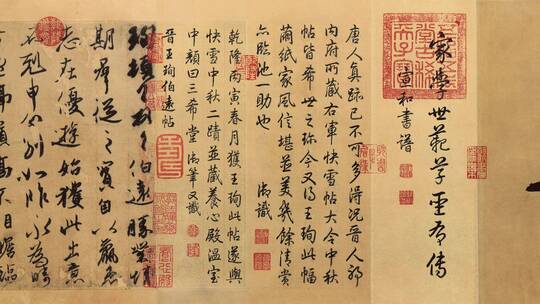 家學世範草聖有傳
宣和書譜
唐人真跡已不可多得況晉人耶
內府所藏右軍快雪帖大令中秋
帖皆希世之珍今又得王珣此幅
繭紙家風信堪並美幾餘清賞
亦臨池一助也 御識
乾隆丙寅春月獲王珣此帖遂與
快雪中秋二蹟並藏養心殿溫室
中顏曰三希堂 御筆又識
晉王珣伯遠帖
珣頓首頓首伯遠勝業情
期群從之寶自以羸患
志在優遊始獲此出意
不剋申分別如昨永為疇